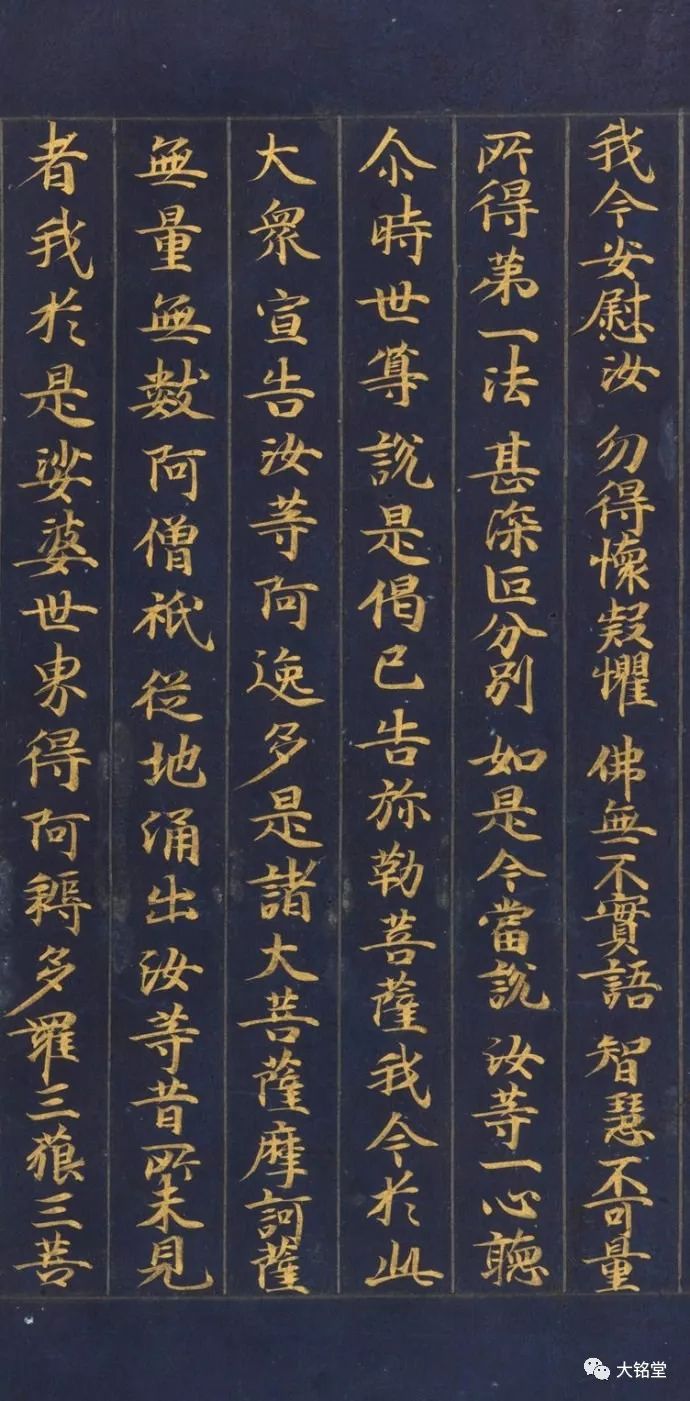 我今安慰汝 勿得懷疑懼 佛無不實語 智慧不可量
所得第一法 甚深叵分別 如是今當說 汝等一心聽
尒時世尊說是偈已告弥勒菩薩我今於此
大眾宣告汝等阿逸多是諸大菩薩摩訶薩
無量無數阿僧祇從地涌出汝等昔所未見
者我於是娑婆世界得阿耨多羅三藐三菩
大铭堂